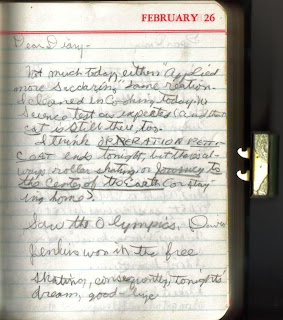 FEBRUARY 26
Dear Diary -
Not much today, either. Applied
more Same reaction.
I cleaned in Cooking today. No
Science test as expected (and that
cat is still there, too.
I think OPERATION PETTI-
COAT ends tonight, but there's al-
ways roller skating or Journey to
the Center of the Earth (or stay-
ing home).
Saw the Olympics, David
Jenkins won in the free
skating, consequently, tonight's
dream, good-bye